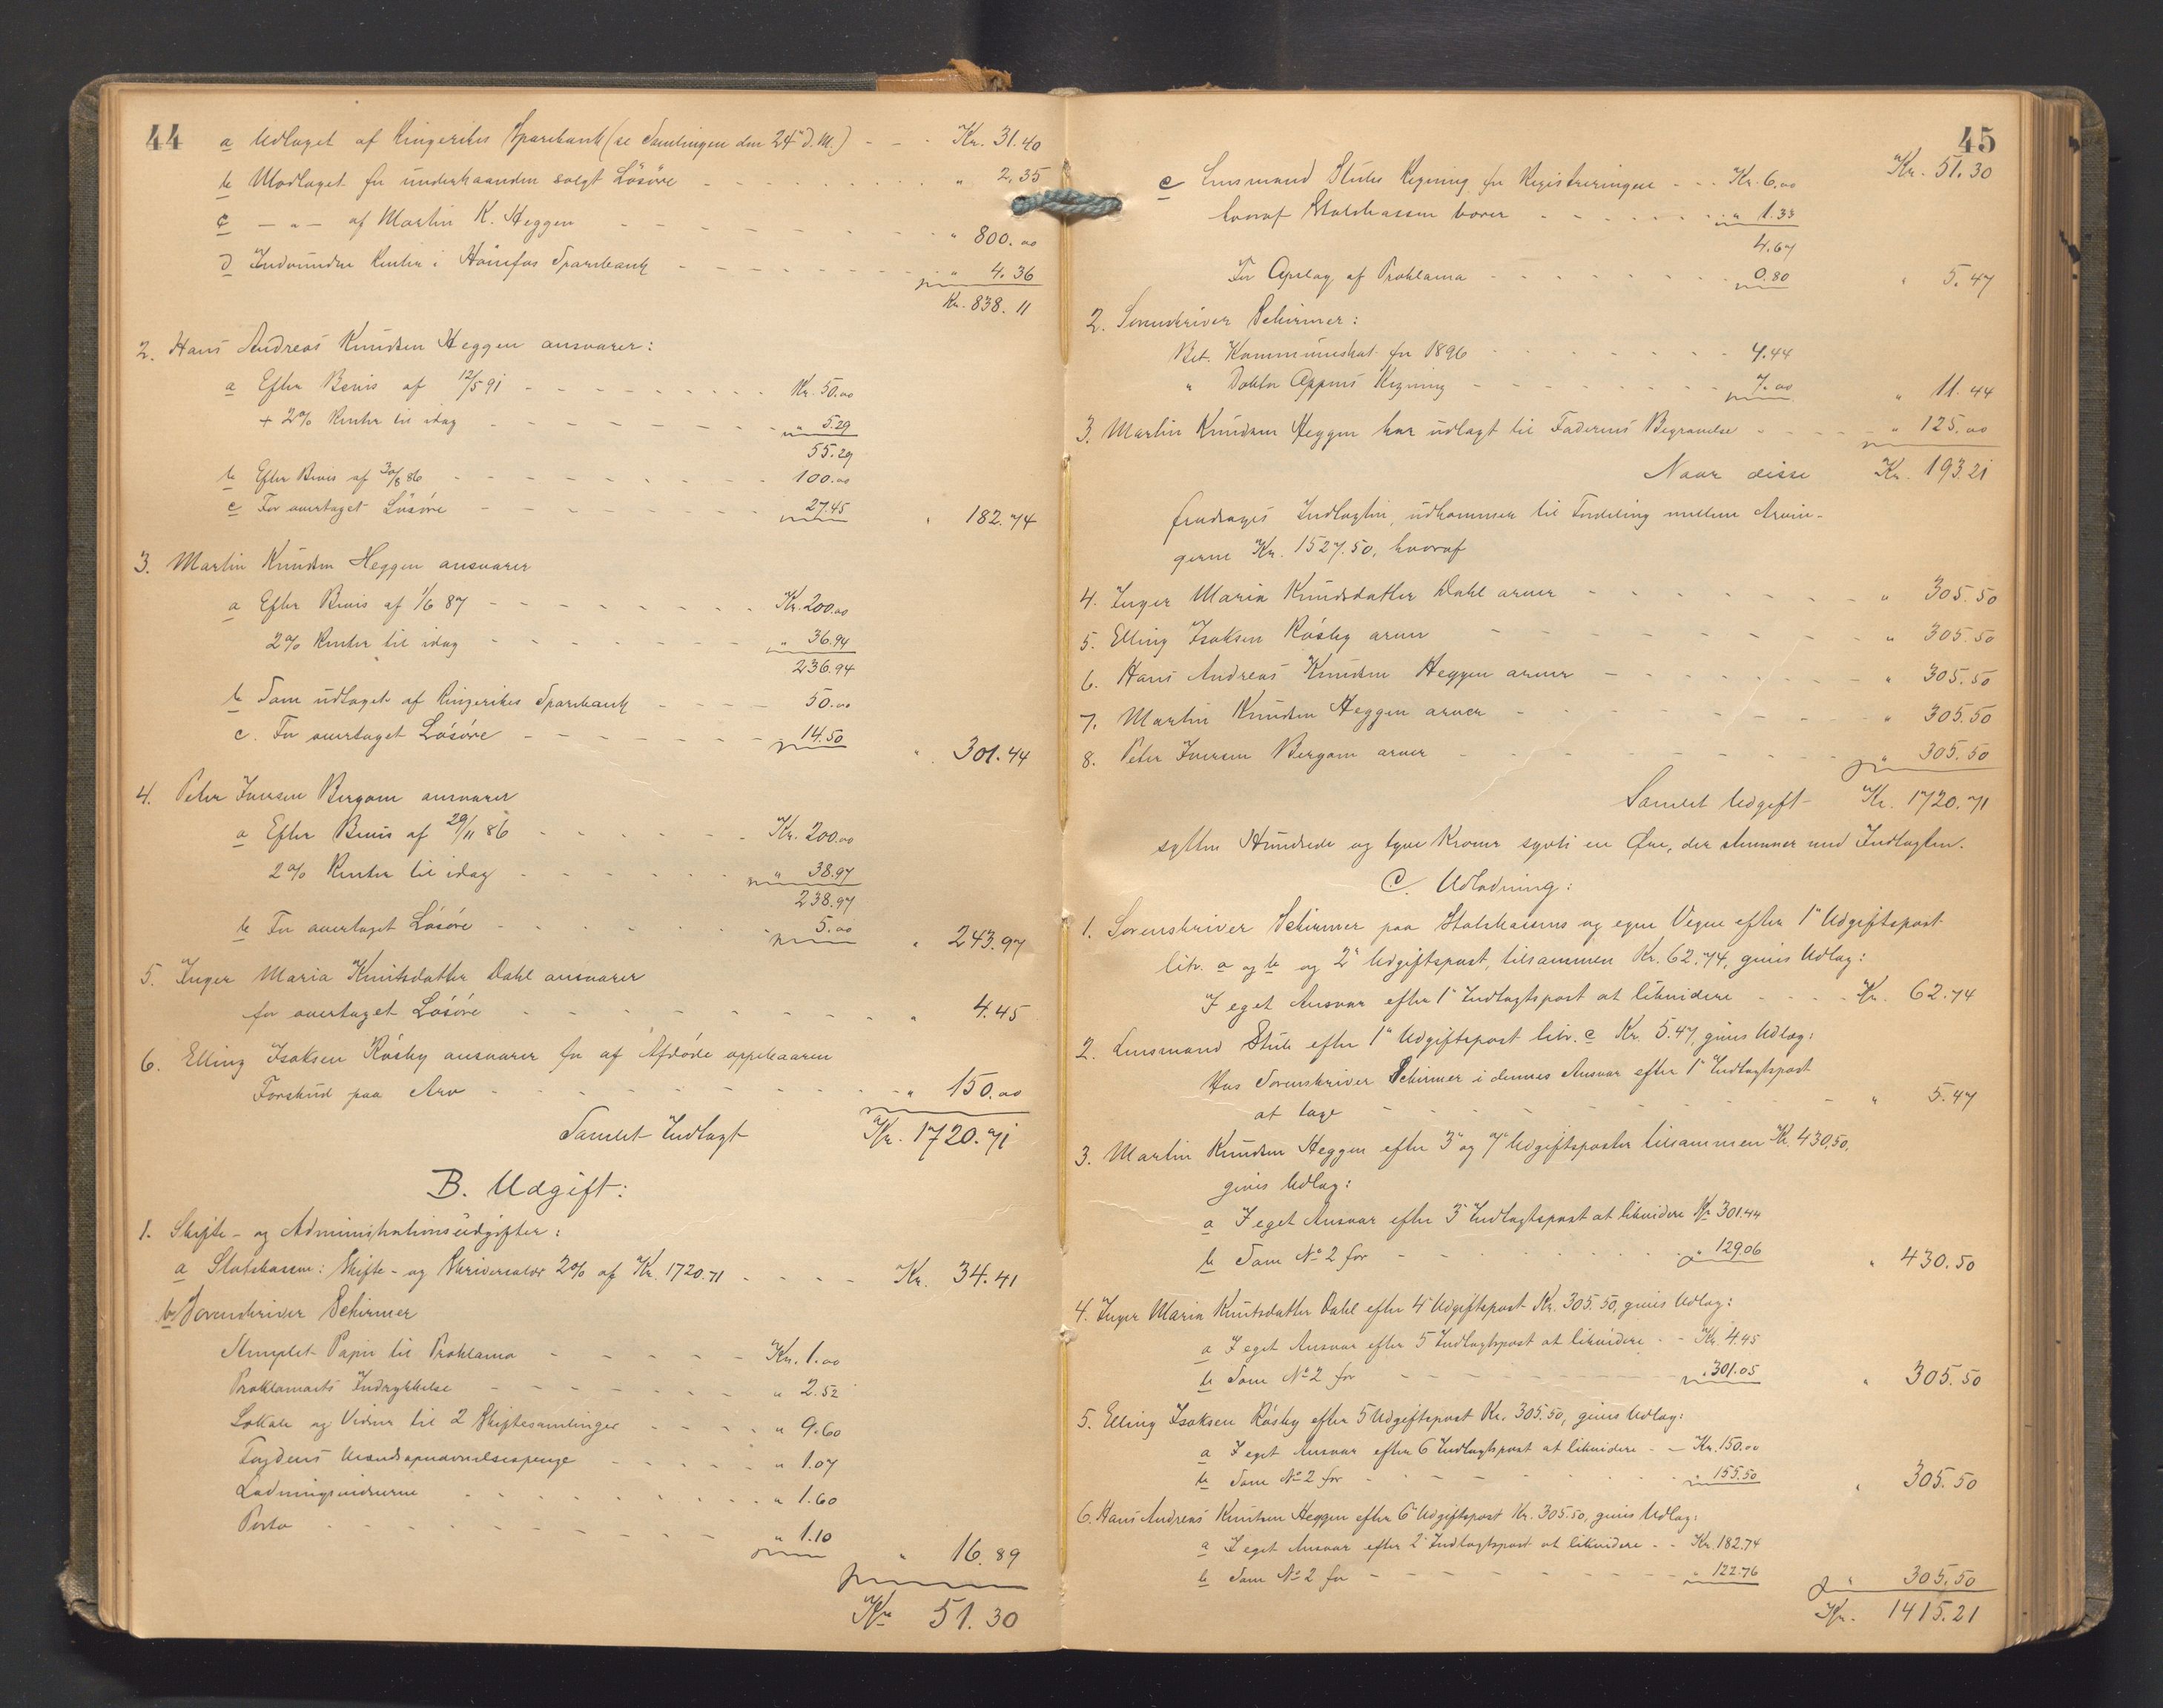 44
a Udlaget af Ringerikes Sparebank (se Samlingen den 24' d.M.) - - Kr. 31.40
b Modtaget for underhaanden solgt Løsøre - - - " 2.35
c — " — af Martin K. Heggen - - - " 800.00
d Indvundne Renter i Hønefos Sparebank - - - " 4.36
Kr. 838.11
2. Hans Andreas Knudsen Heggen ansvarer:
a Efter Bevis af 12/5 91 - - - Kr. 50.00
+ 2% Renter til idag - - - " 5.29
55.29
b Efter Bevis af 30/8 86 - - - 100.00
c For overtaget Løsøre - - - 27.45 " 182.74
3. Martin Knudsen Heggen ansvarer
a Efter Bevis af 1/6 87 - - - Kr. 200.00
2% Renter til idag - - - " 36.94
236.94
b Som udtaget af Ringerikes Sparebank - - - 50.00
c. For overtaget Løsøre - - - 14.50 " 301.44
4. Peter Iversen Bergom ansvarer
a Efter Bevis af 29/11 86 - - - Kr. 200.00
2% Renter til idag - - - " 38.97
238.97
b For overtaget Løsøre - - - 5.00 " 243.97
5. Inger Maria Knutsdatter Dahl ansvarer
for overtaget Løsøre - - - " 4.45
6. Elling Isaksen Røsby ansvarer for af Afdøde oppebaaren
Forskud paa Arv - - - " 150.00
Samlet Indtægt Kr. 1720.71
B. Udgift:
1. Skifte- og Administrationsudgifter:
a Statskassen: Skifte- og Skriversalær 2% af Kr. 1720.71 - - - Kr. 34.41
b Sorenskriver Schirmer
Stemplet Papir til Proklama - - - Kr. 1.00
Proklamaets Indrykkelse - - - " 2.52
Lokale og Vidner til 2 Skiftesamlinger - - - " 9.60
Fogdens - - - " 1.07
Lodningsvidnerne - - - " 1.60
Porto - - - " 1.10 " 16.89
Kr 51.30
45
Kr. 51.30
c Lensmand Stubs Regning for Registreringen - - - Kr. 6.00
hvoraf Statskassen bærer - - - " 1.33
4.67
For Opslag af Proklama - - - 0.80 " 5.47
2. Sorenskriver Schirmer:
Bet. Kommuneskat for 1896 - - - 4.44
" Doktor Regning - - - 7.00 " 11.44
3. Martin Knudsen Heggen har udlagt til Faderens Begravelse - - - " 125.00
Naar disse Kr. 193.21
fradrages Indtægten, udkommer til Fordeling mellem Arvin-
gerne Kr. 1527.50, hvoraf
4. Inger Maria Knudsdatter Dahl arver - - - " 305.50
5. Elling Isaksen Røsby arver - - - " 305.50
6. Hans Andreas Knudsen Heggen arver - - - " 305.50
7. Martin Knudsen Heggen arver - - - " 305.50
8. Peter Iversen Bergom arver - - - " 305.50
Samlet Udgift Kr. 1720.71
sytten Hundrede og tyve Kroner sytti en Øre, der stemmer med Indtægten.
C. Udlodning:
1. Sorenskriver Schirmer paa Statskassens og egne Vegne efter 1" Udgiftspost
litr. a og b og 2" Udgiftspost, tilsammen Kr. 62.74, givis Udlæg:
I eget Ansvar efter 1" Indtægtspost at likvidere - - - Kr. 62.74
2. Lensmand Stub efter 1" Udgiftspost litr. c Kr. 5.47, givis Udlæg:
Hos Sorenskriver Schirmer i dennes Ansvar efter 1" Indtægtspost
at tage - - - " 5.47
3. Martin Knudsen Heggen efter 3" og 7" Udgiftsposter tilsammen Kr. 430.50,
givis Udlæg:
a I eget Ansvar efter 3" Indtægtspost at likvidere Kr 301.44
b Som No 2 for - - - " 129.06 " 430.50
4. Inger Maria Knutsdatter Dahl efter 4" Udgiftspost Kr. 305.50, givis Udlæg:
a I eget Ansvar efter 5 Indtægtspost at likvidere - - Kr. 4.45
b Som No 2 for - - - " 301.05 " 305.50
5. Elling Isaksen Røsby efter 5 Udgiftspost Kr. 305.50, givis Udlæg:
a I eget Ansvar efter 6 Indtægtspost at likvidere - - Kr. 150.00
b Som No 2 for - - - " 155.50 " 305.50
6. Hans Andreas Knutsen Heggen efter 6" Udgiftspost Kr. 305.50, givis Udlæg:
a I eget Ansvar efter 2" Indtægtspost at likvidere - - Kr. 182.74
b Som No 2 for - - - " 122.76 " 305.50
Kr. 1415.21